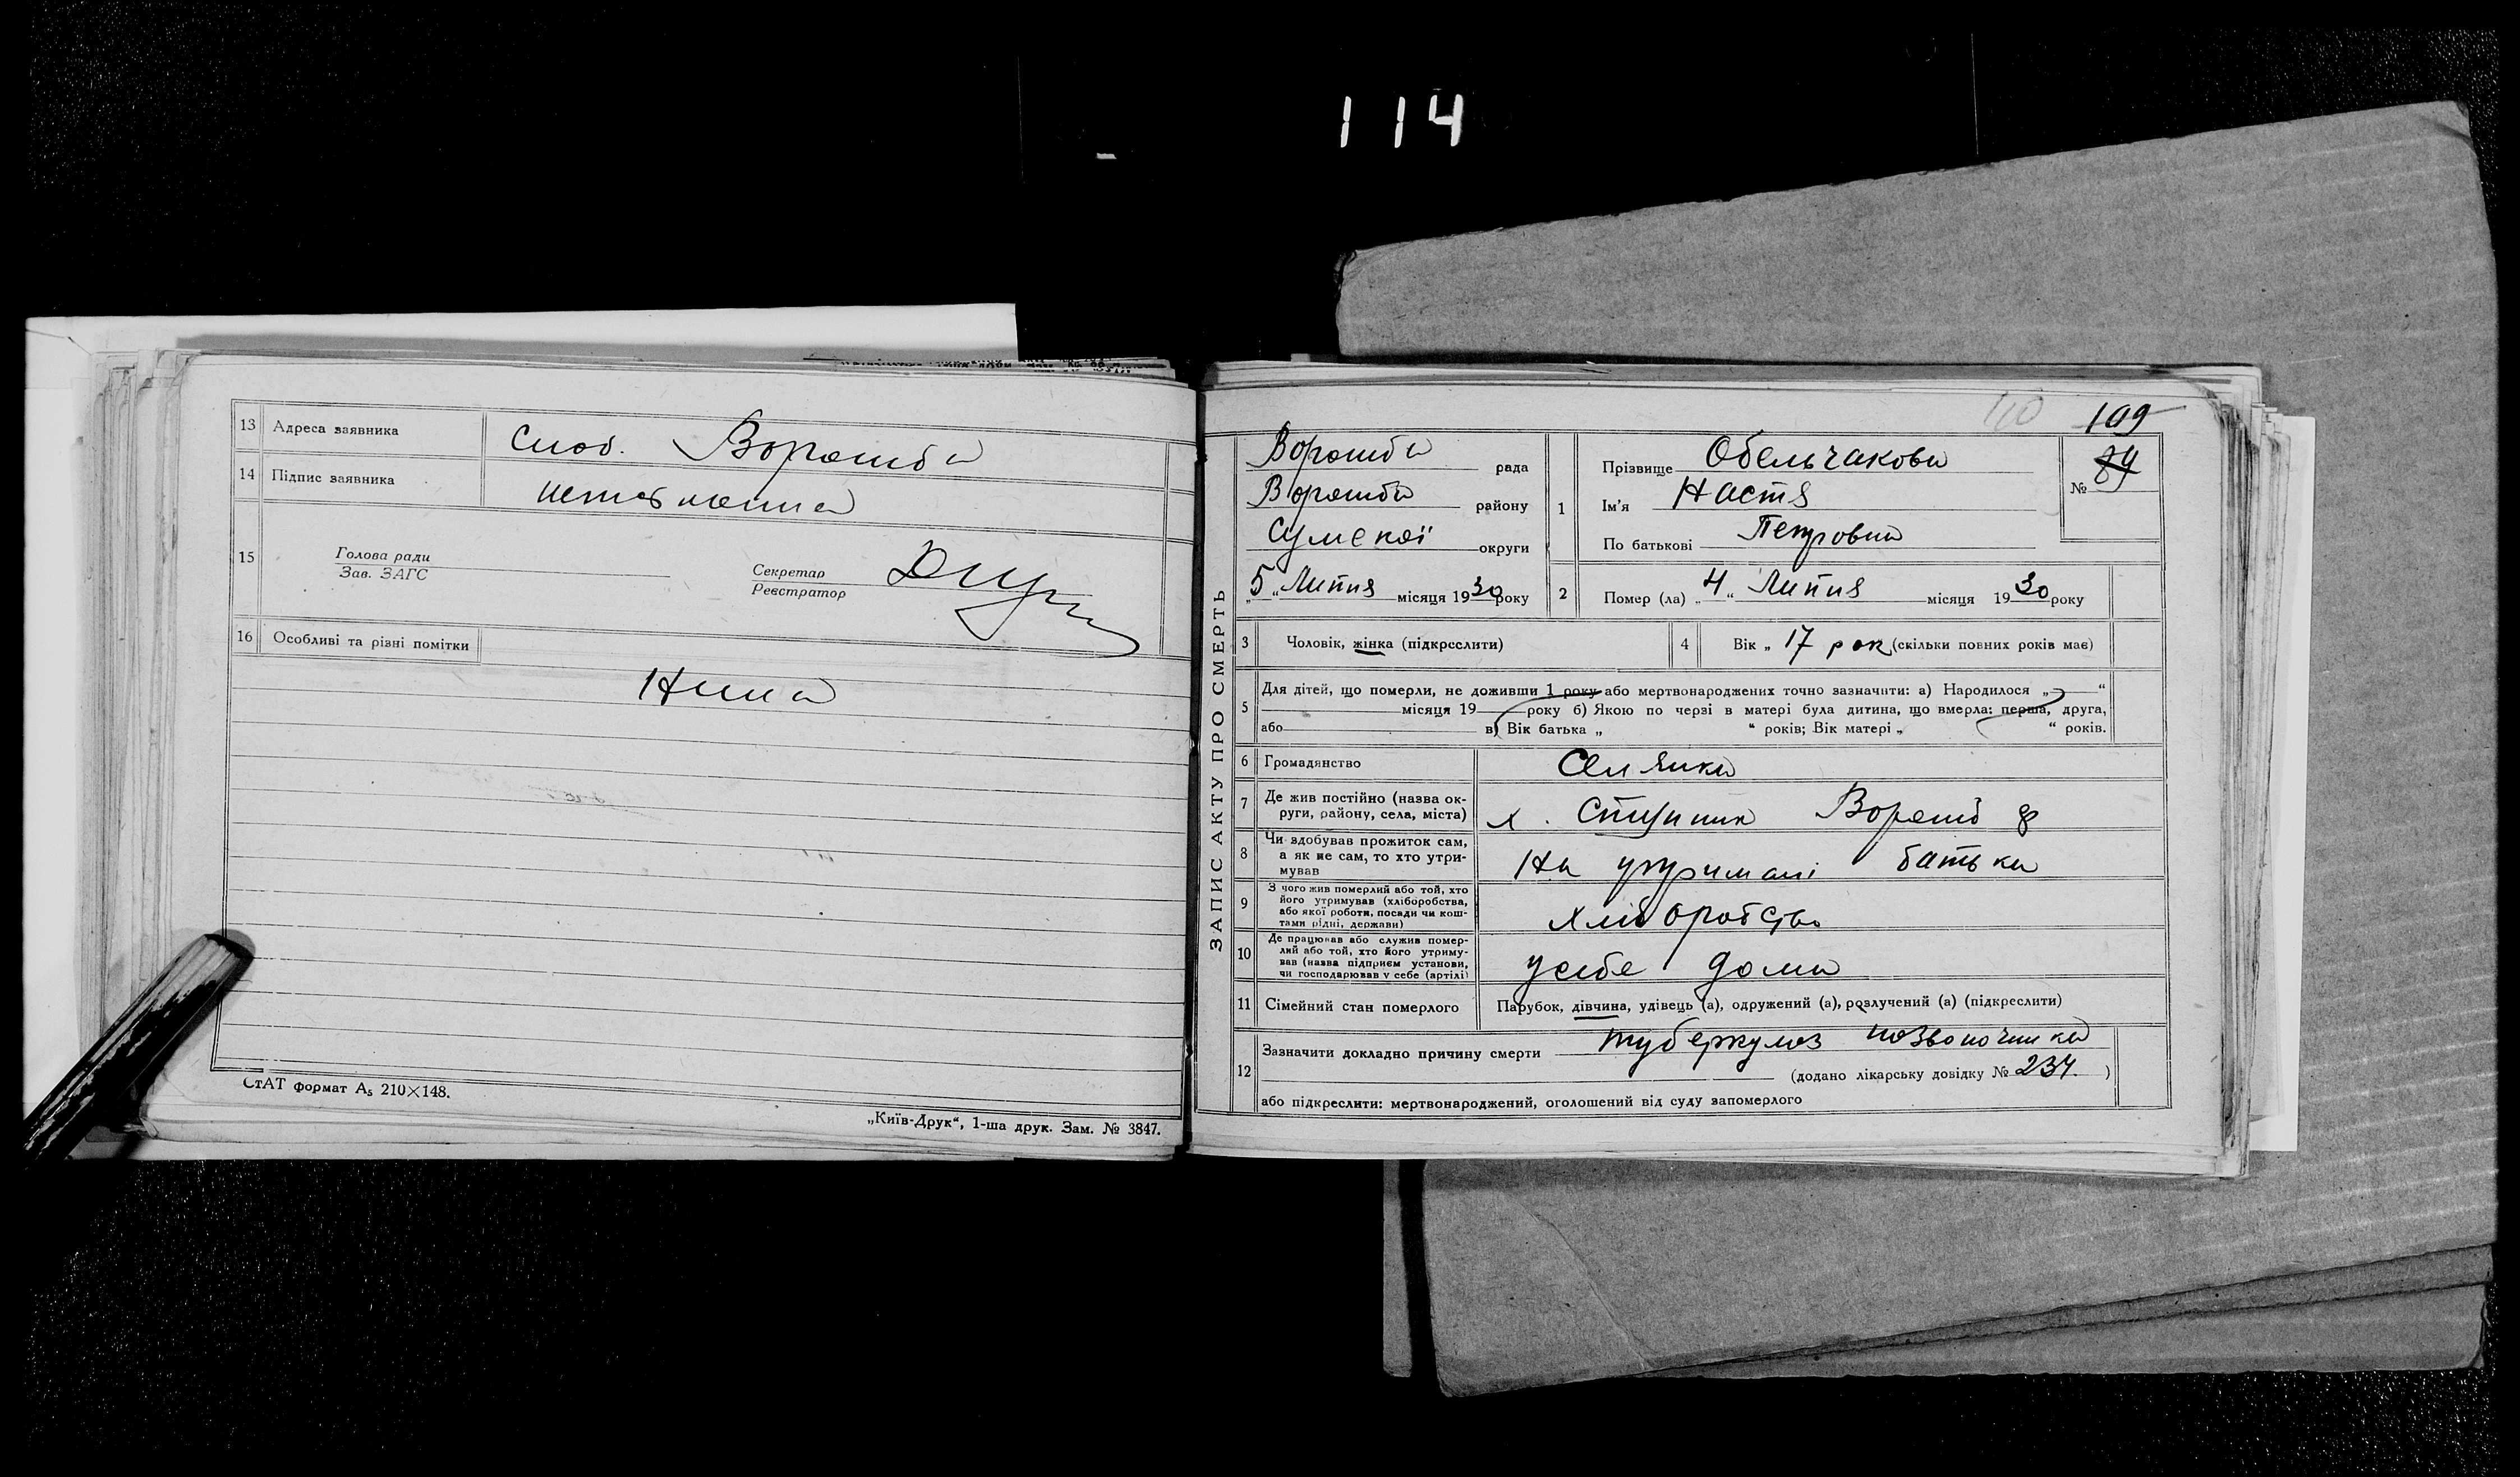 114
13 Адреса заявника Слоб. Ворожба
14 Підпис заявника
15 Голова ради
Зав. ЗАГС
Секретар
Реєстратор
16 Особливі та різні помітки
Нина
СтАТ формат А₅ 210×148.
„Київ-Друк“, 1-ша друк. Зам. № 3847.
110 109
ЗАПИС АКТУ ПРО СМЕРТЬ
Ворожба рада
Ворожба району
Сумської округи
„5“ Липня місяця 1930 року
1 Прізвище Обельчакова
Ім'я Настя
По батькові Петровна
№ 84
2 Помер (ла) „4“ Липня місяця 1930 року
3 Чоловік, жінка (підкреслити)
4 Вік „ 17 рок (скільки повних років має)
5 Для дітей, що померли, не доживши 1 року або мертвонароджених точно зазначити: а) Народилося „ “
місяця 19 року б) Якою по черзі в матері була дитина, що вмерла: перша, друга,
або в) Вік батька „ “ років; Вік матері „ “ років.
6 Громадянство Селянка
7 Де жив постійно (назва ок-
руги, району, села, міста) х. Ворожб
8 Чи здобував прожиток сам,
а як не сам, то хто утри-
мував На утримані батька
9 З чого жив померлий або той, хто
його утримував (хліборобства,
або якої роботи, посади чи кош-
тами рідні, держави) хліборобство
10 Де працював або служив помер-
лий або той, хто його утриму-
вав (назва підприєм установи,
чи господарював у себе (артілі) усебе дома
11 Сімейний стан померлого Парубок, дівчина, удівець (а), одружений (а), розлучений (а) (підкреслити)
12 Зазначити докладно причину смерти туберкулоз позвоночника
(додано лікарську довідку № 234. )
або підкреслити: мертвонароджений, оголошений від суду запомерлого